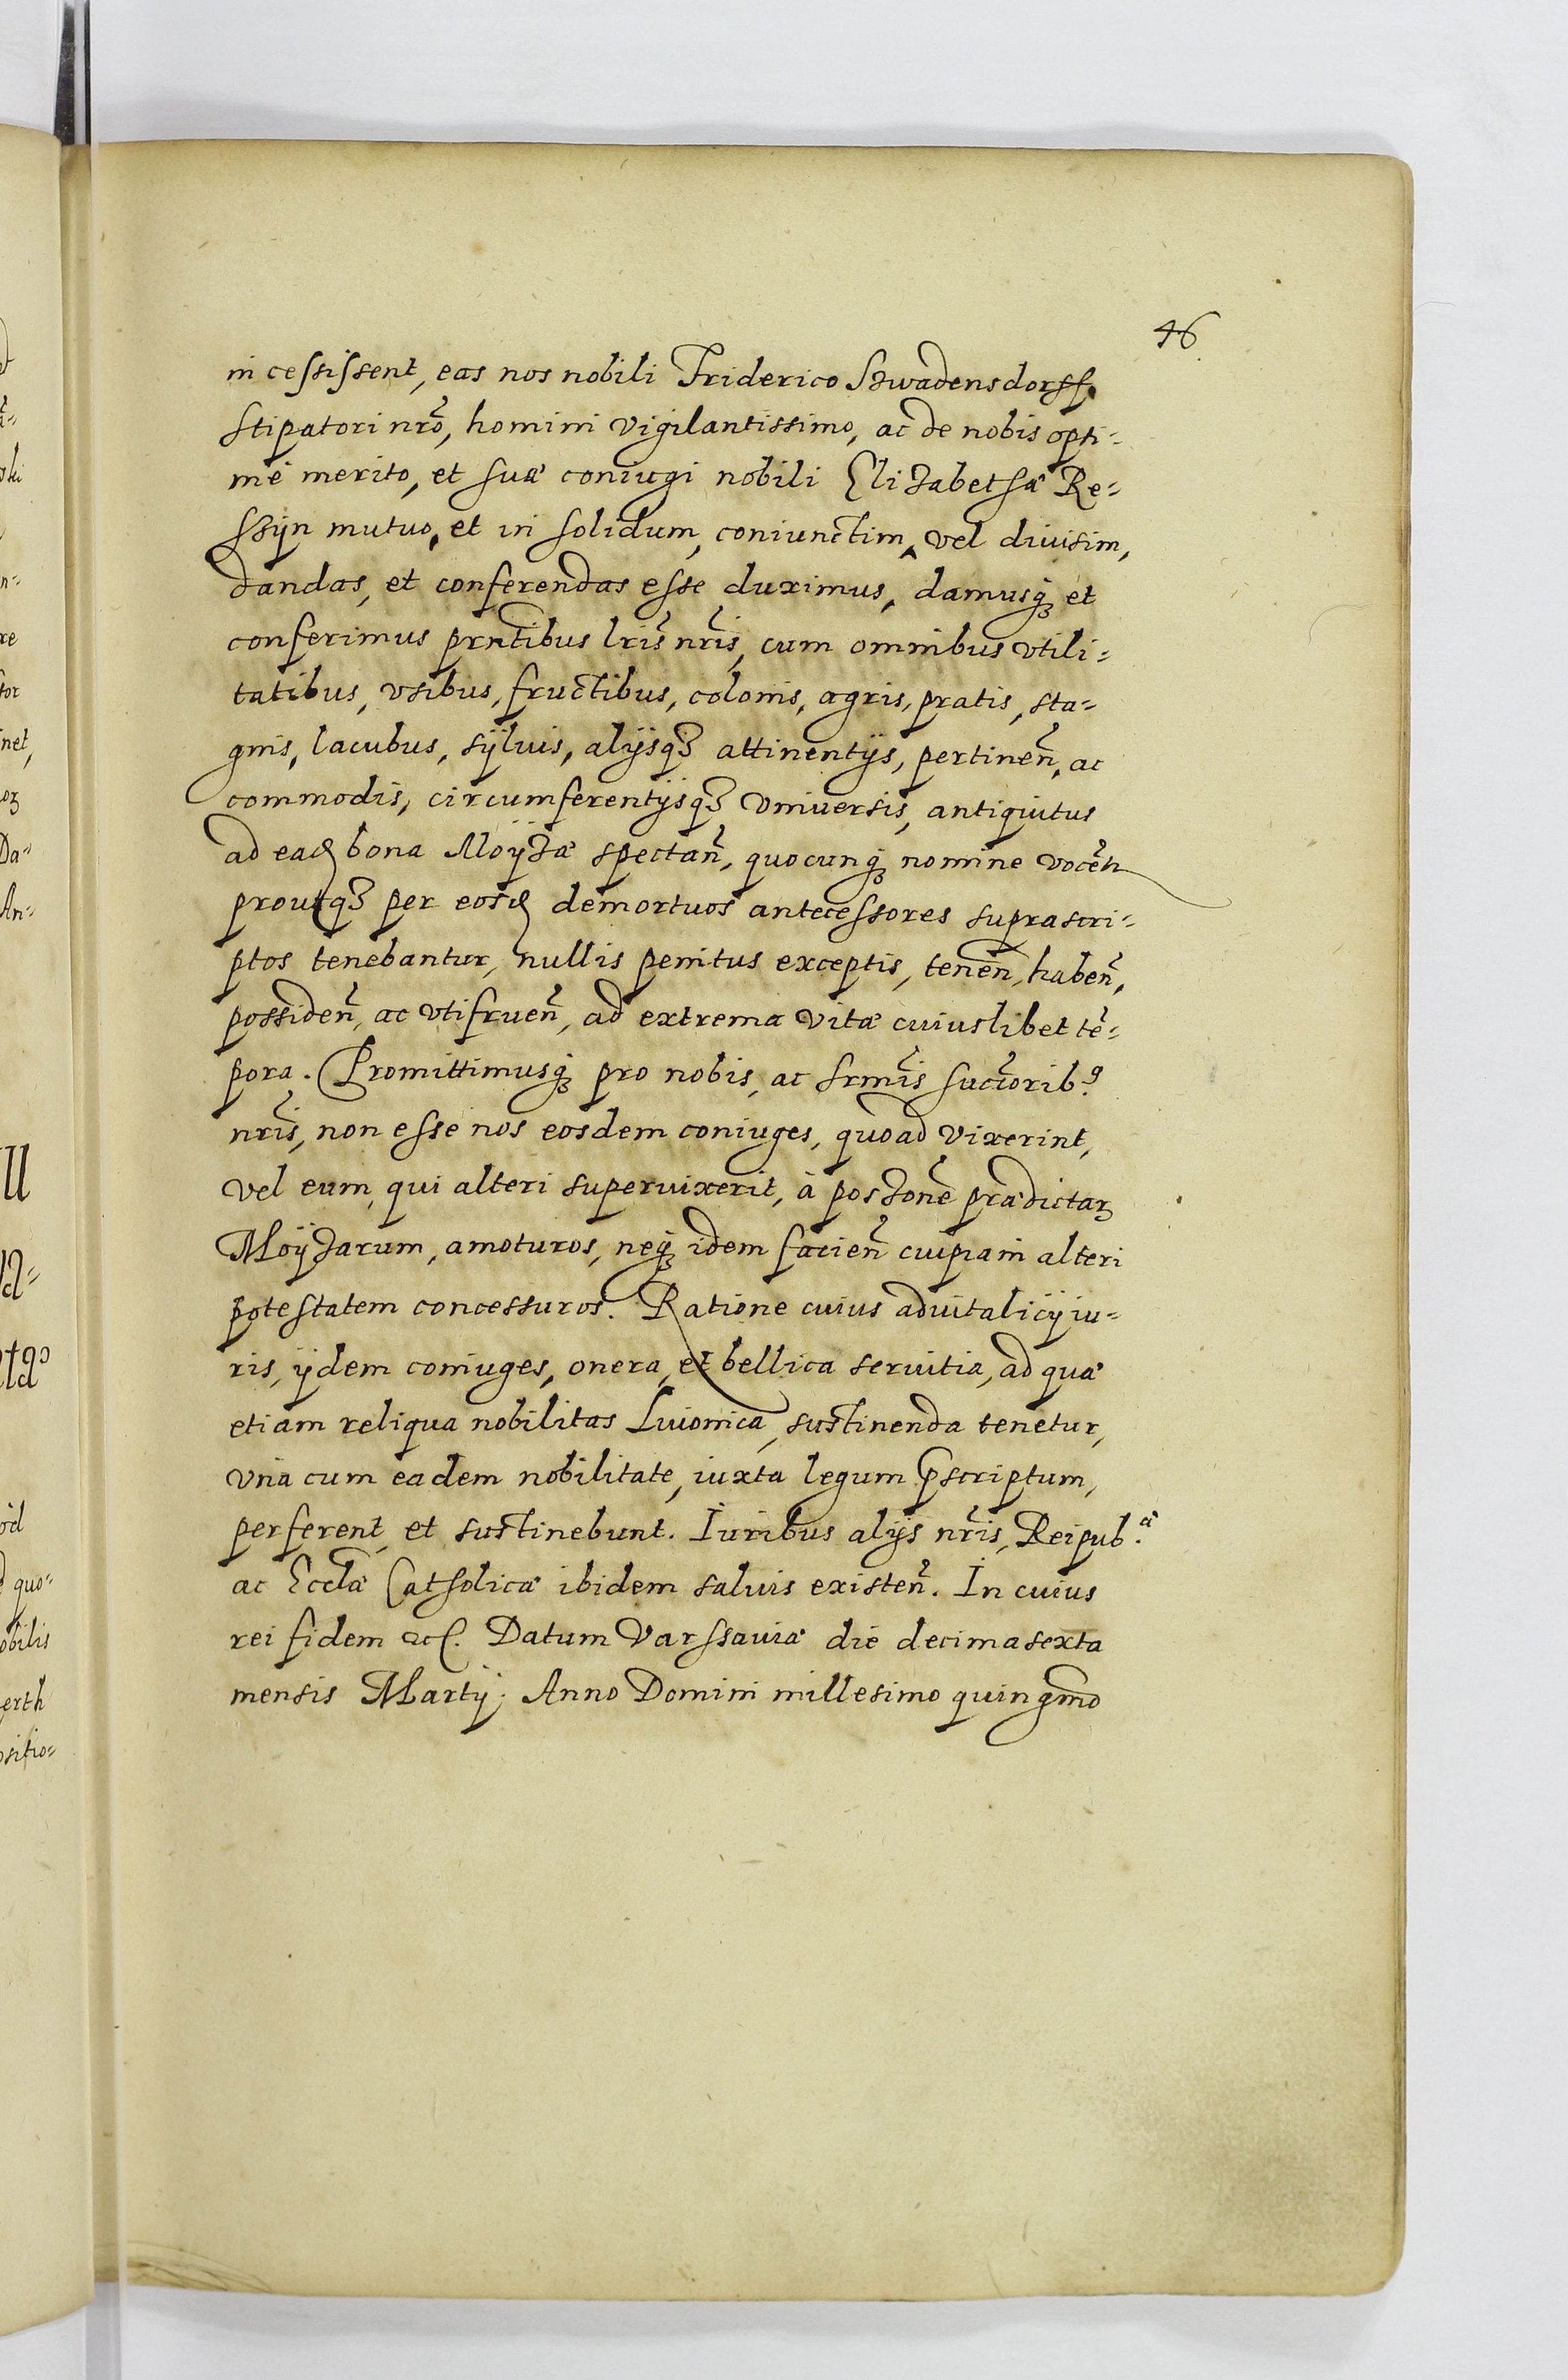 46.
in cessissent, eas nos nobili Friderico Szwadensdorff,
stipatori nrõ, homini vigilantissimo, ac de nobis opti-
mè merito, et suæ coniugi nobili Elizabethæ Re-
ssyn mutuo, et in solidum, coniunctim, vel diuisim,
dandas, et conferendas esse duximus, damusq; et
conferimus prñtibus lris̃ nris̃, cum omnibus vtili-
tatibus, vsibus, fructibus, colonis, agris, pratis, sta-
gnis, lacubus, sÿluis, alijsq; attinentijs, pertineñ, ac
commodis, circumferentijsq; vniuersis, antiquitus
ad eaḍ bona Moÿzæ spectañ, quocunq; nomine vocẽtr
proutq; per eosḍ demortuos antecessores suprascri-
ptos tenebantur, nullis penitus exceptis, teneñ, habeñ,
possideñ, ac vtifrueñ, ad extrema vitæ cuiuslibet tẽ-
pora. Promittimusq; pro nobis, ac srmis̃ succ̃oribꝰ
nris̃, non esse nos eosdem coniuges, quoad vixerint,
vel eum, qui alteri superuixerit, à poszonẽ prædictaꝝ
Moÿzarum, amoturos, neq; idem facieñ cuipiam alteri
potestatem concessuros. Ratione cuius aduitalicij iu-
ris, ijdem coniuges, onera, et bellica seruitia, ad quæ
etiam reliqua nobilitas Liuonica, sustinenda tenetur,
vnà cum eadem nobilitate, iuxta legum p̃scriptum,
perferent, et sustinebunt. Iuribus alijs nris̃, Reipub.cæ
ac Ecclæ̃ Catholicæ ibidem saluis existeñ. In cuius
rei fidem etc. Datum Varssauiæ die decima sexta
mensis Martij. Anno Domini millesimo quingm̃o